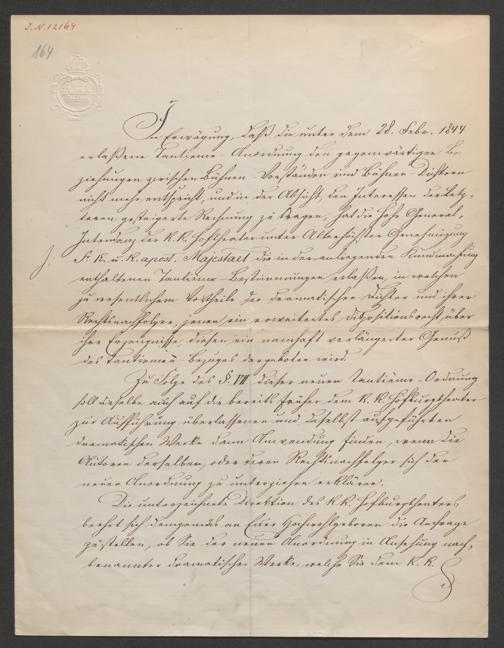 J.N. 12164
164
In Erwägung, daß die unter dem 28. Febr. 1844
erlaßene Tantième-Anordnung den gegenwärtigen Be-
ziehungen zwischen Bühnen-Vorständen und Bühnen-Dichtern
nicht mehr entspricht, und in der Absicht, den Interessen der Letz-
teren gesteigerte Rechnung zu tragen, hat die hohe General-
Intendanz der K.K. Hoftheater unter Allerhöchster Genehmigung
Sr. K. u. K. apost. Majestaet die in der anliegenden Kundmachung
enthaltenen Tantième-Bestimmungen erlassen, in welchen
zu wesentlichem Vortheile der dramatischen Dichter und ihrer
Rechtsnachfolger, jenen ein erweitertes Dispositionsrecht über
ihre Erzeugnisse, diesen ein namhaft verlängerter Genuß
des Tantièmen-Bezuges dargeboten wird.
Zu Folge des §. VII dieser neuen Tantième-Ordnung
soll dieselbe auch auf die bereits früher dem K.K. Hofburgtheater
zur Aufführung überlassenen und daselbst aufgeführten
dramatischen Werke dann Anwendung finden, wenn die
Autoren derselben, oder deren Rechtsnachfolger sich der
neuen Anordnung zu unterziehen erklären.
Die unterzeichnete Direktion des K.K. Hofburgtheaters
beehrt sich demgemäß an Euer Hochwohlgeboren die Anfrage
zu stellen, ob Sie der neuen Anordnung in Ansehung nach-
benannter dramatischer Werke, welche Sie dem K.K.